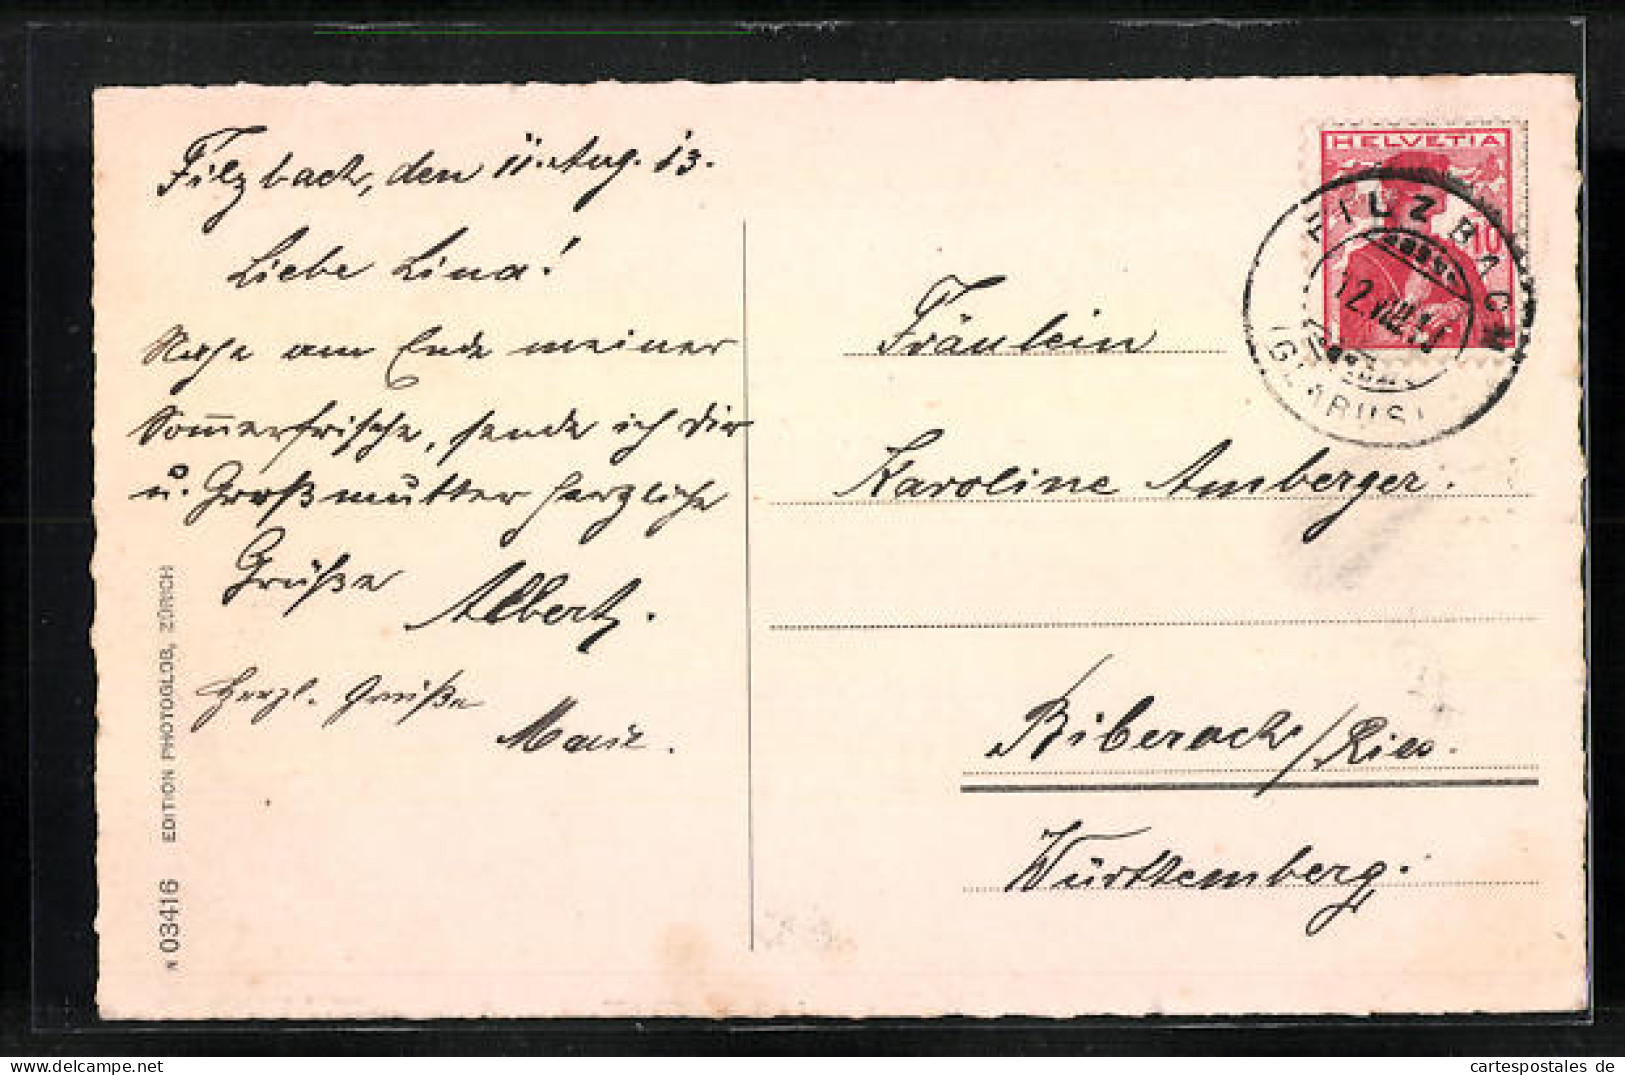 Filzbach, den 11. Aug. 13.
Liebe Lina!
Nahe am Ende meiner
Sommerfrische, sende ich dir
u. Großmutter herzliche
Grüße
Albert.
Herzl. Grüße
Marie.
N 03416 EDITION PHOTOGLOB, ZÜRICH
HELVETIA
10
FILZBACH
12.VIII.13
(GLARUS)
Fräulein
Karoline Amberger.
Biberach/Riss.
Württemberg.
cartespostales de